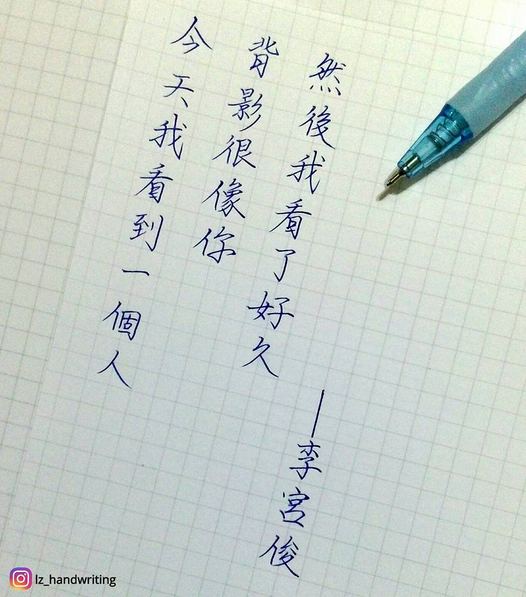 今天我看到一個人
背影很像你
然後我看了好久
—李宮俊
lz_handwriting